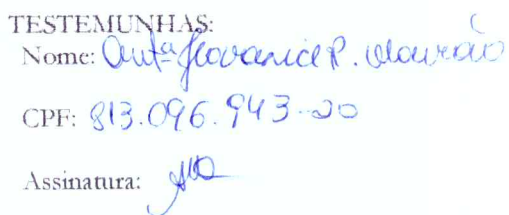 TESTEMUNHAS:
Nome: Antª Jeovanice P. Mourão
CPF: 813.096.943-20
Assinatura: